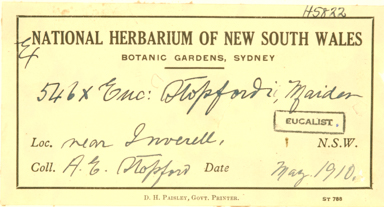 H5822
Ex
NATIONAL HERBARIUM OF NEW SOUTH WALES
BOTANIC GARDENS, SYDNEY
546 x Euc: Stopfordi, Maiden
EUCALIST.
Loc. near Inverell, N.S.W.
Coll. A. E. Stopford Date May 1910.
D. H. PAISLEY, GOVT. PRINTER.
SY 768